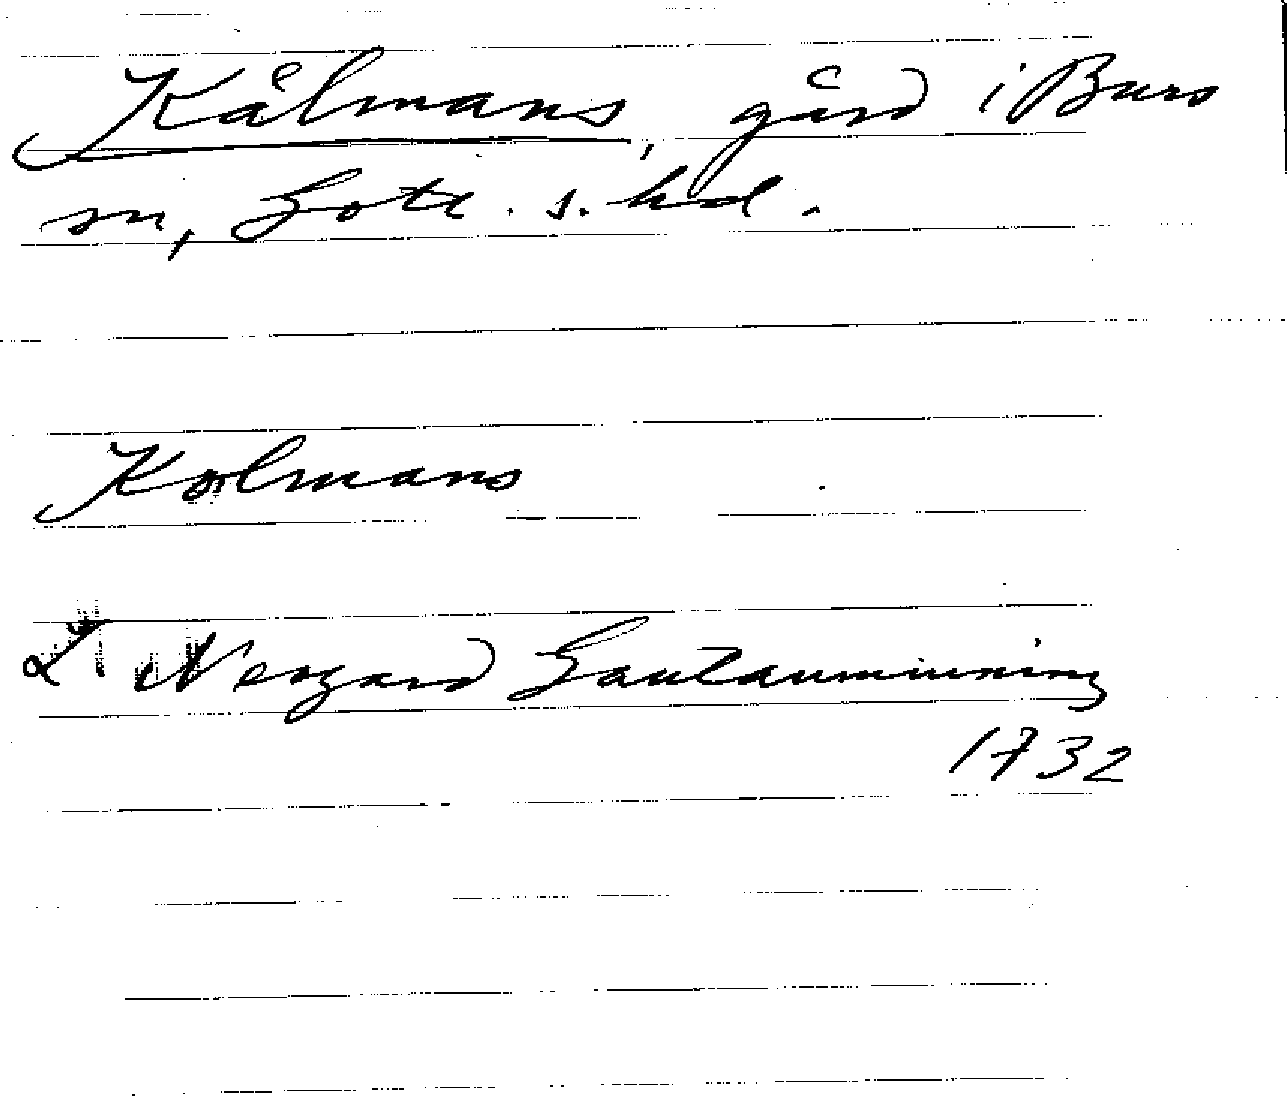 Kålmans, gård i Burs
sn, Gotl. s. hd.
Kolmans
L. Neogard Gautauminning
1732